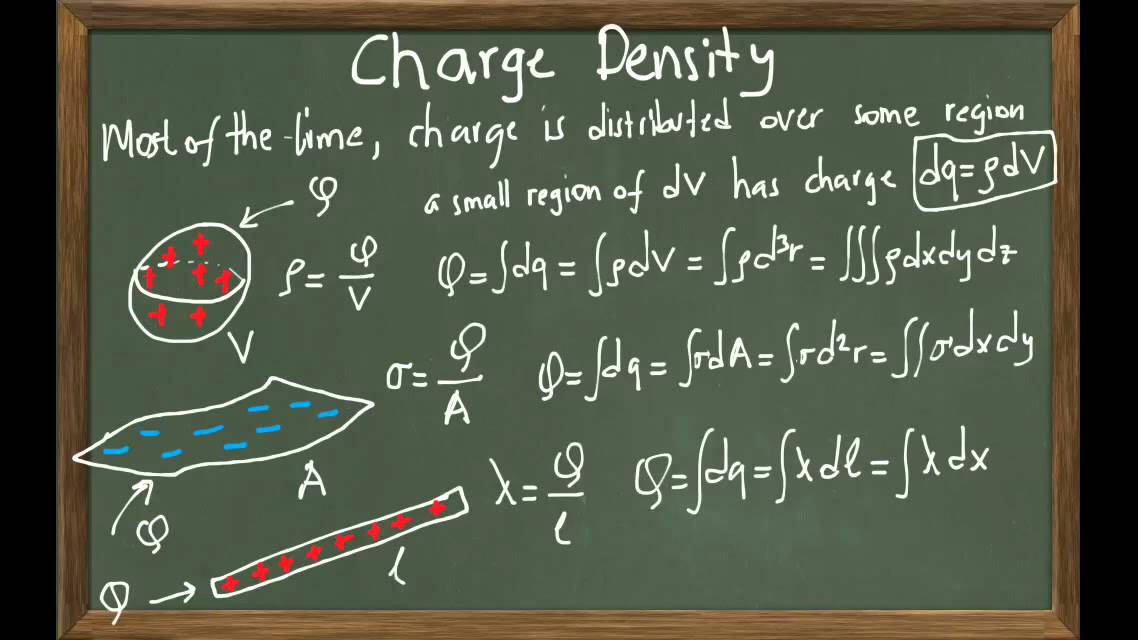 Charge Density
Most of the time, charge is distributed over some region
a small region of dV has charge dq = ρdV
Q
ρ = Q/V
Q = ∫dq = ∫ρdV = ∫ρd³r = ∫∫∫ρdxdydz
V
σ = Q/A
Q = ∫dq = ∫σdA = ∫σd²r = ∫∫σdxdy
A
Q
λ = Q/l
Q = ∫dq = ∫λdl = ∫λdx
l
Q